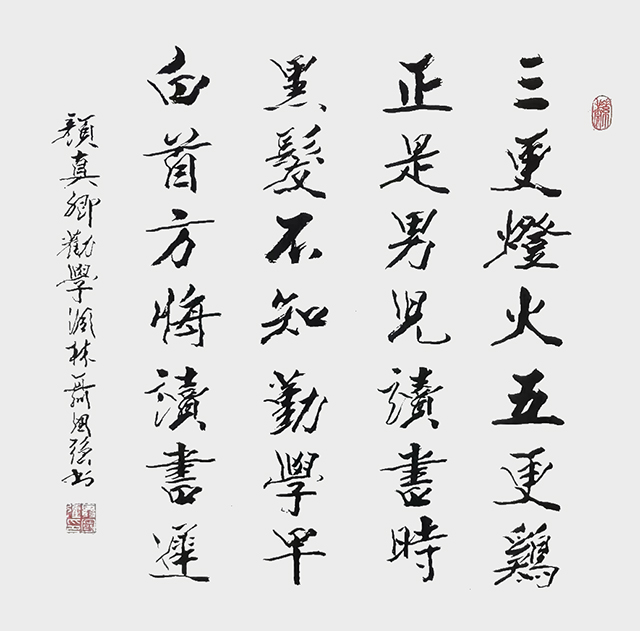 三更燈火五更鷄
正是男児讀書時
黑髮不知勤學早
白首方悔讀書遲
顔真卿勸學 林 書